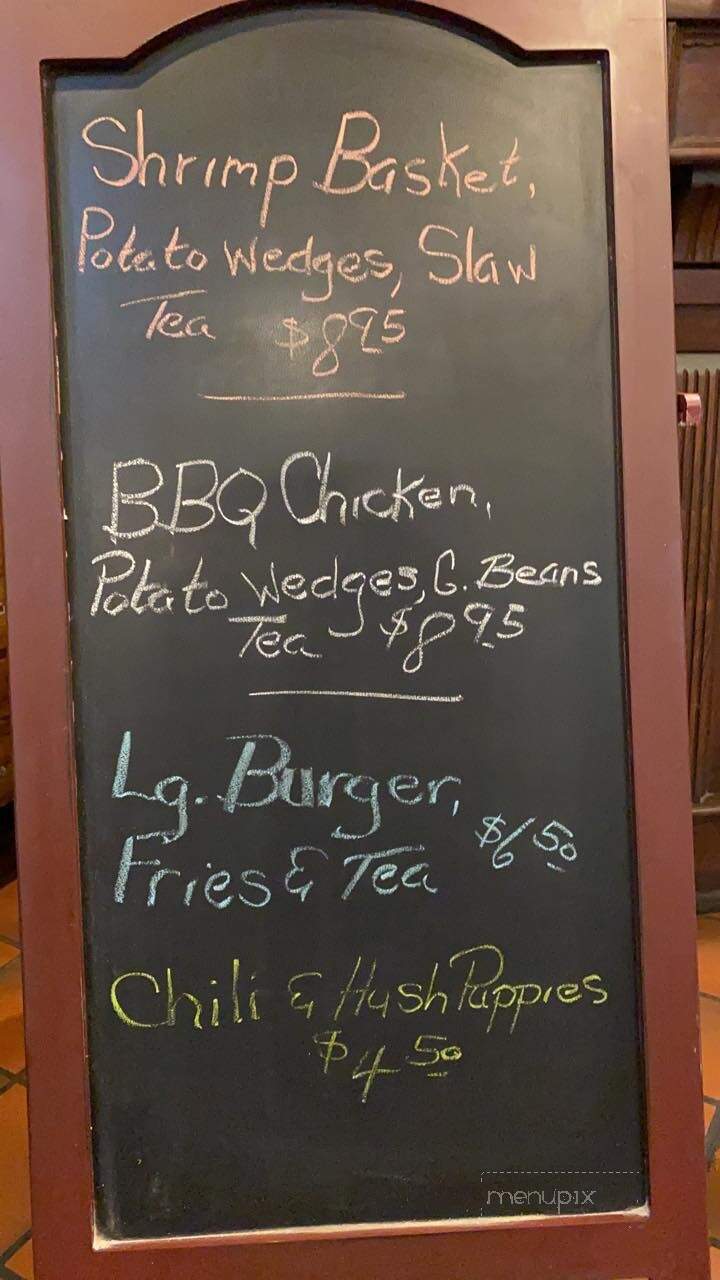 Shrimp Basket,
Potato Wedges, Slaw
Tea $8.95
BBQ Chicken,
Potato Wedges, G. Beans
Tea $8.95
Lg. Burger,
Fries & Tea $6.50
Chili & Hush Puppies
$4.50
menupix